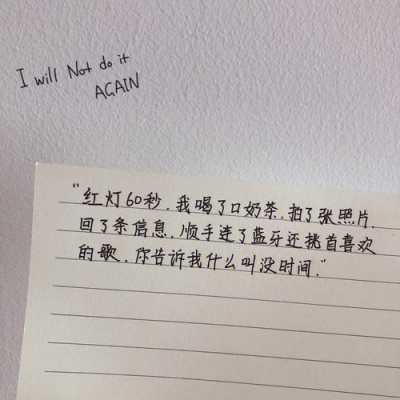 I will Not do it
AGAIN
"红灯60秒.我喝了口奶茶.拍了张照片.
回了条信息.顺手连了蓝牙还挑首喜欢
的歌.你告诉我什么叫没时间."